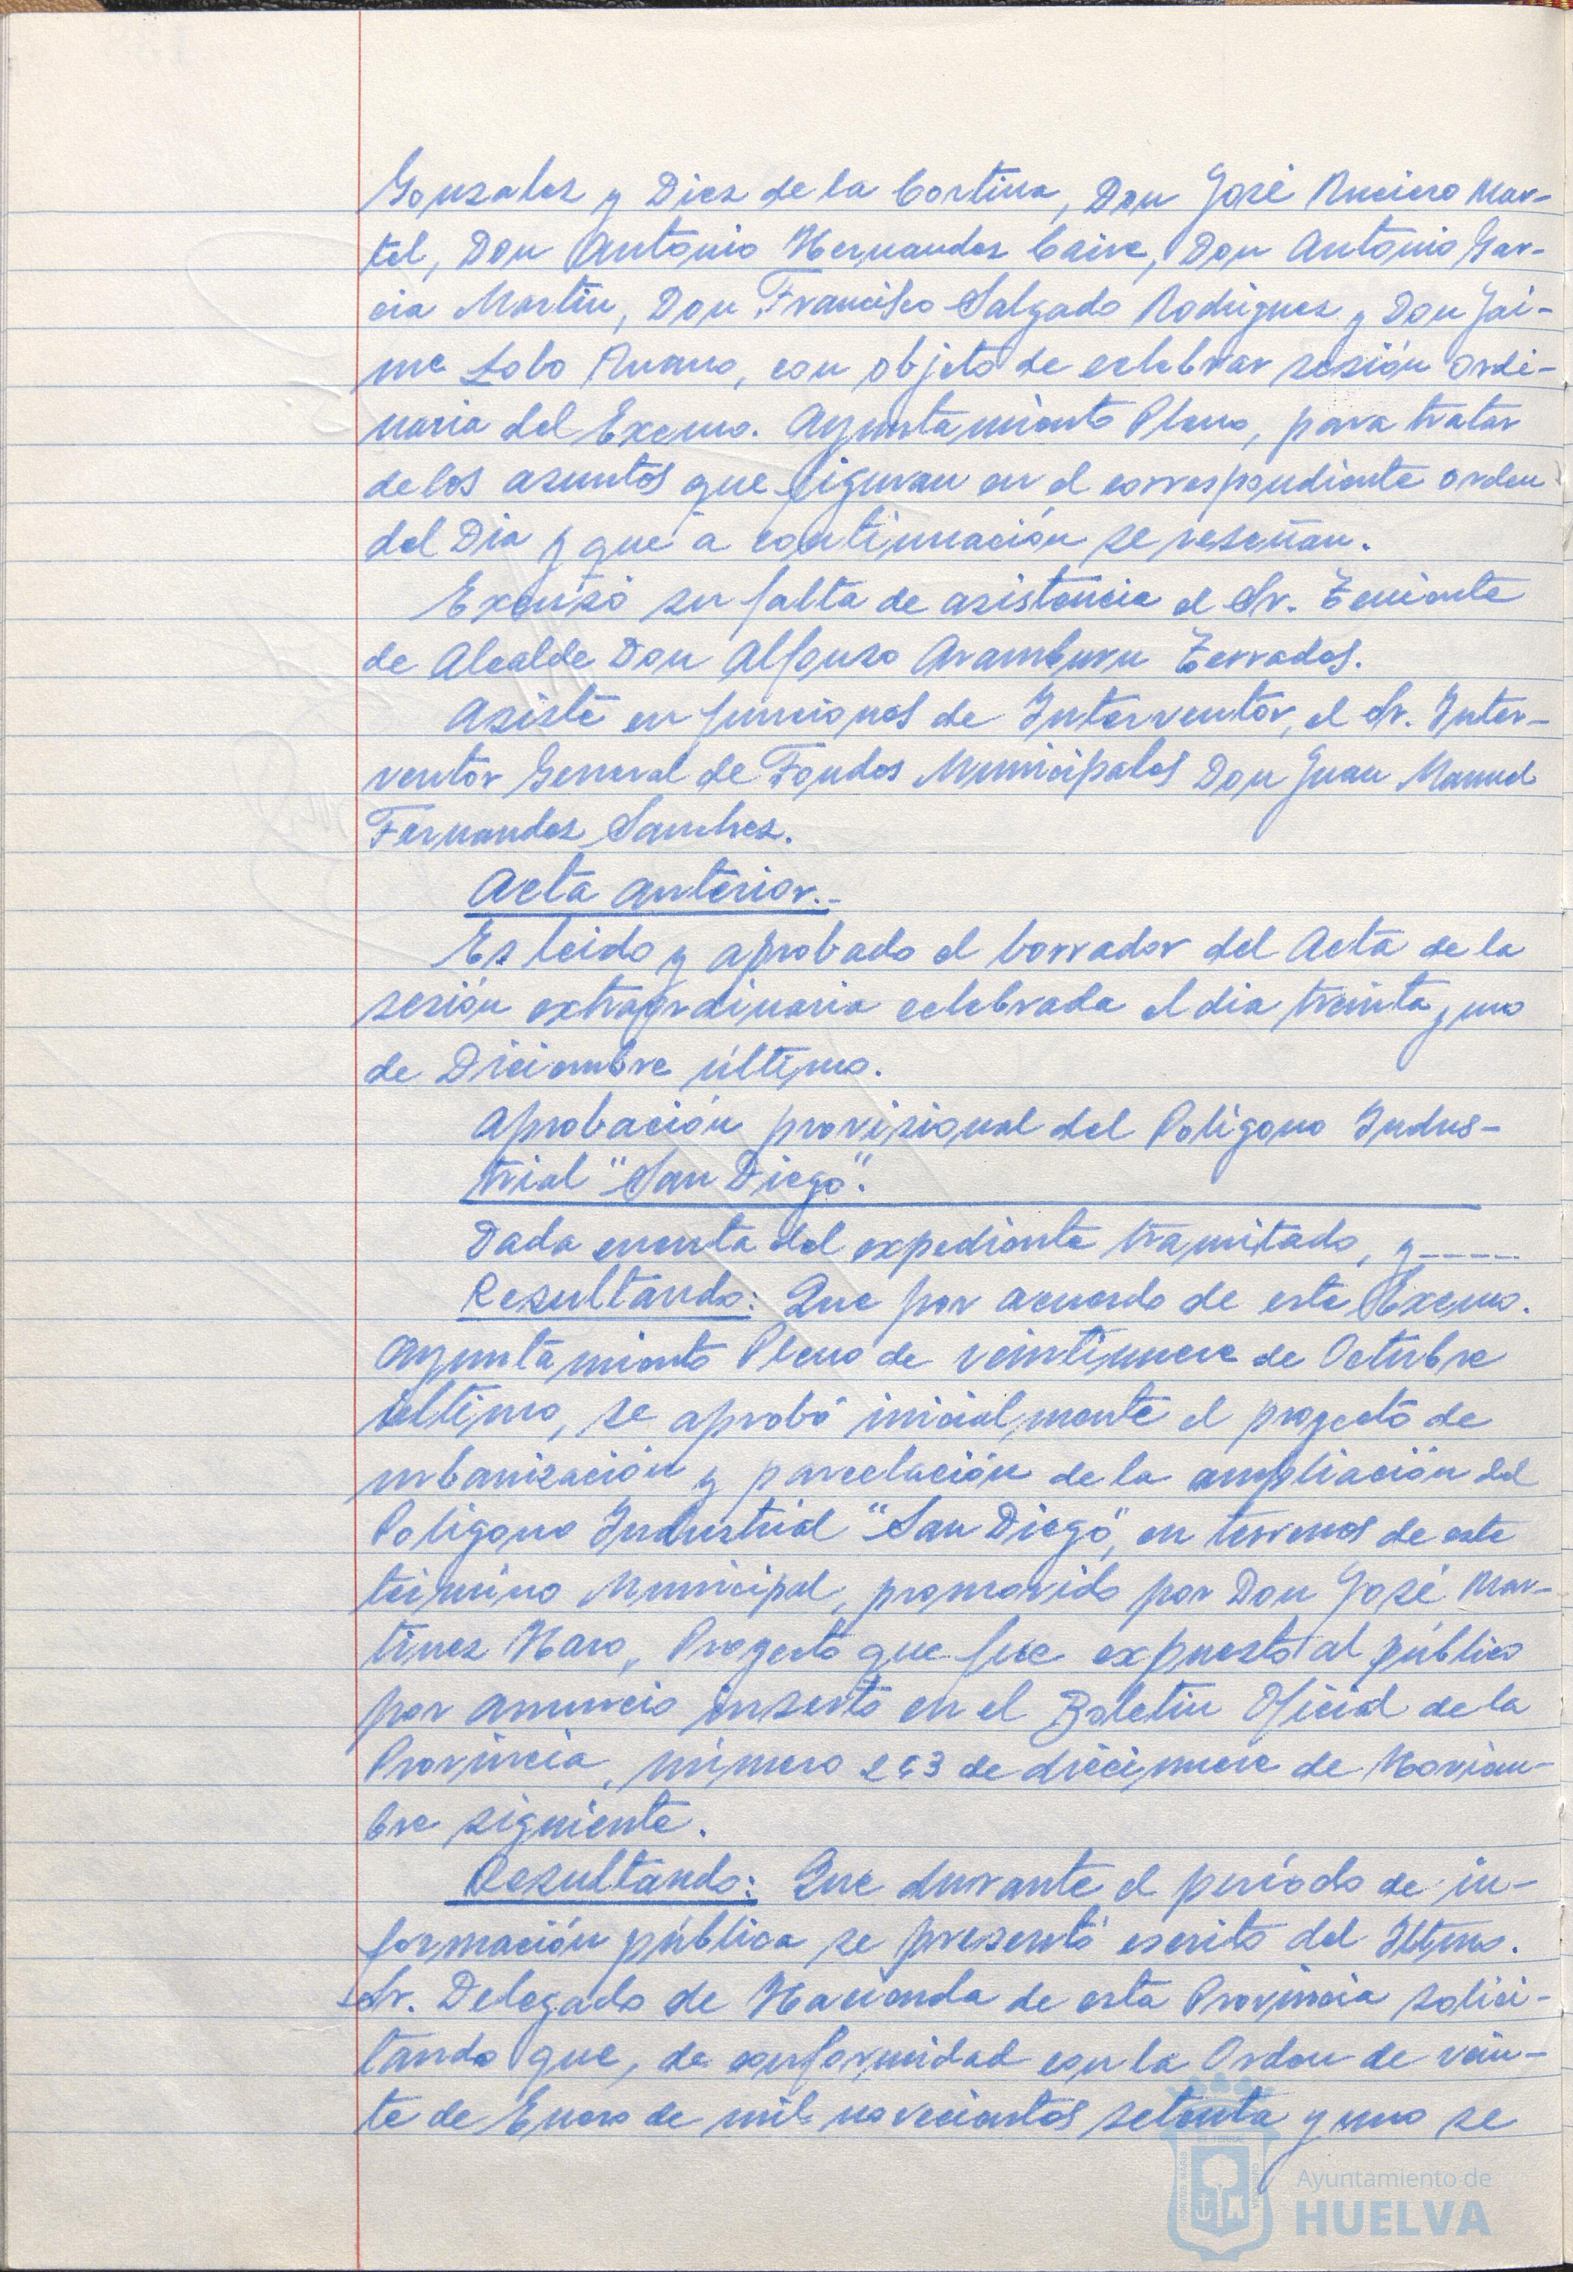 Gonzalez y Diez de la Cortina, Don José Ruciero Mar-
tel, Don Antonio Hernandez Caire, Don Antonio Gar-
cia Martin, Don Francisco Salgado Rodriguez y Don Jai-
me Lobo Ruano, con objeto de celebrar sesión ordi-
naria del Excmo. Ayuntamiento Pleno, para tratar
de los asuntos que figuran en el correspondiente orden
del Dia y que a continuación se reseñan.
Excusó su falta de asistencia el Sr. Teniente
de Alcalde Don Alfonso Aramburu Terrados.
Asiste en funciones de Interventor, el Sr. Inter-
ventor General de Fondos Municipales Don Juan Manuel
Fernandez Sanchez.
Acta anterior.-
Es leido y aprobado el borrador del Acta de la
sesión extraordinaria celebrada el dia treinta y uno
de Diciembre último.
Aprobación provisional del Poligono Indus-
trial "San Diego".
Dada cuenta del expediente tramitado, y-----
Resultando: Que por acuerdo de este Excmo.
Ayuntamiento Pleno de veintinueve de Octubre
último, se aprobó inicialmente el proyecto de
urbanización y parcelación de la ampliación del
Poligono Industrial "San Diego", en terrenos de este
término Municipal, promovido por Don José Mar-
tinez Haro, Proyecto que fue expuesto al público
por anuncio inserto en el Boletin Oficial de la
Provincia, número 263 de diecinueve de Noviem-
bre siguiente.
Resultando: Que durante el periodo de in-
formación pública se presentó escrito del Iltmo.
Sr. Delegado de Hacienda de esta Provincia solici-
tando que, de conformidad con la Orden de vein-
te de Enero de mil novecientos setenta y uno se
Ayuntamiento de
HUELVA